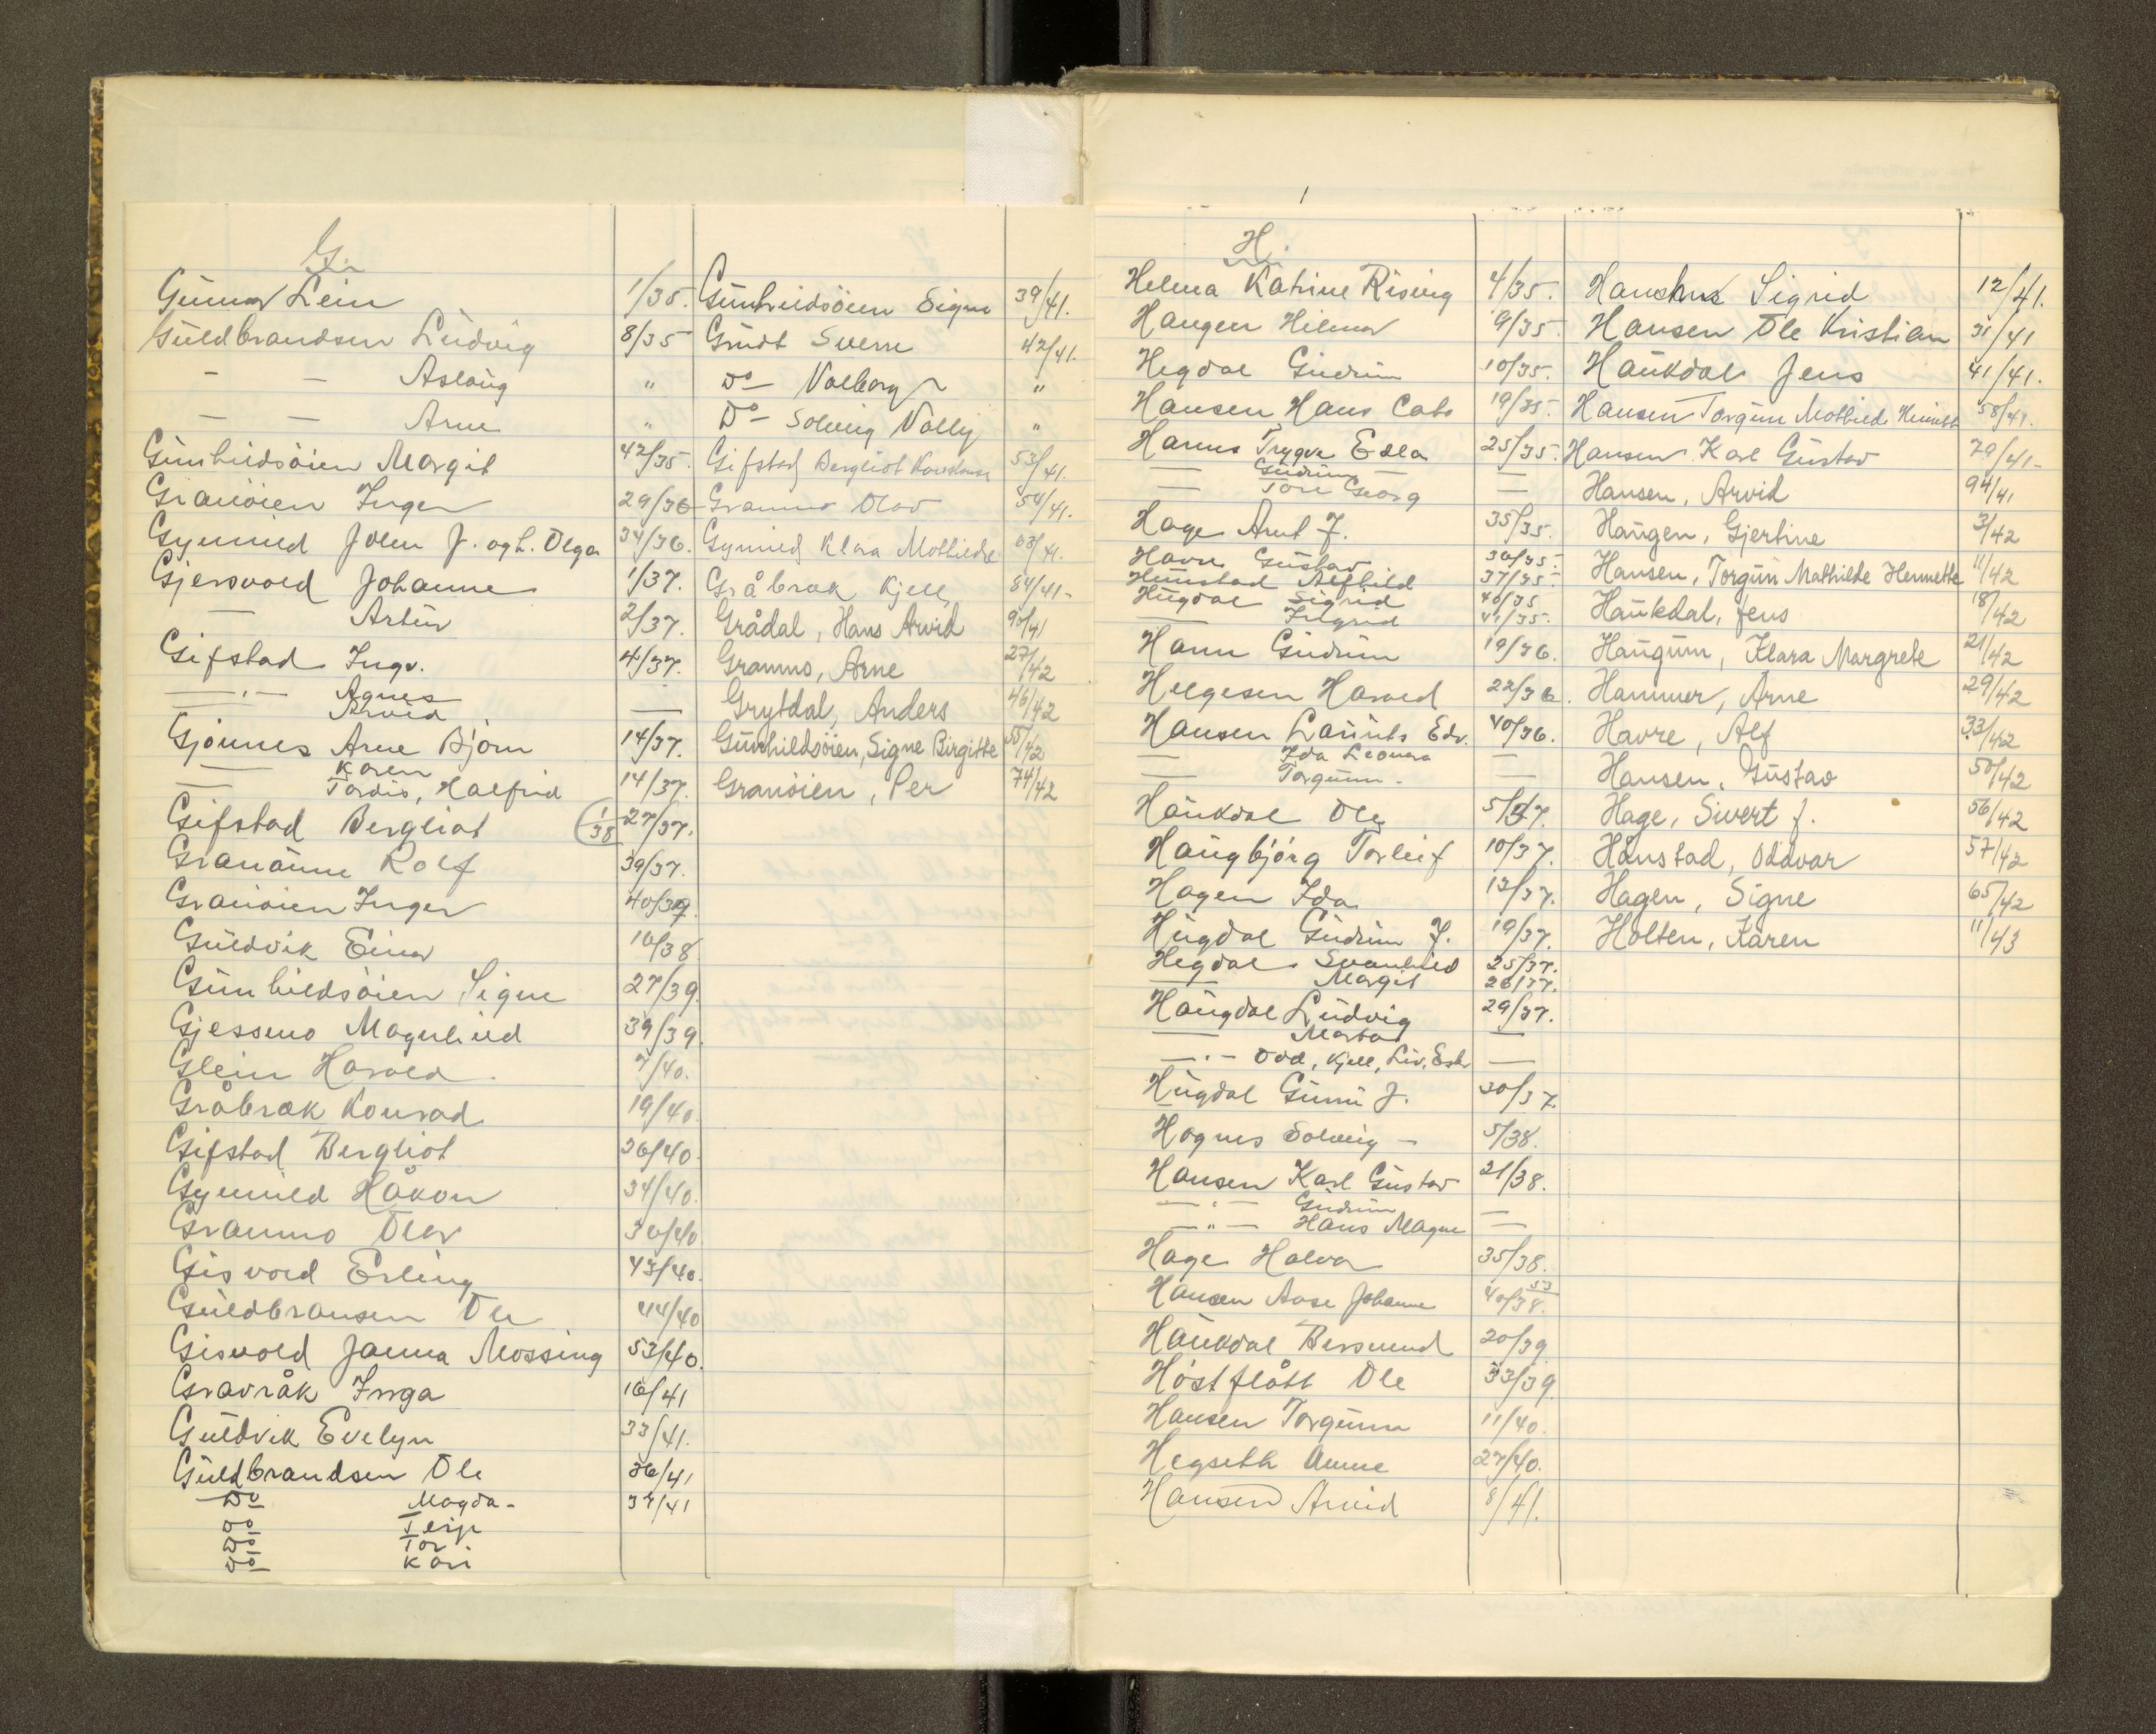 G.
Gunnar Lein 1/35.
Guldbrandsen Ludvig 8/35
- - Aslaug "
- - Arne "
Gunhildsöien Margit 42/35.
Granöien Inger 29/36
Gynnild John J. og h. Olga 34/36.
Gjersvold Johanne 1/37.
— Artur 2/37.
Gifstad Ingv. 4/37.
—"— Agnes
Arvid —
Gjönnes Arne Björn 14/37.
— Karen
— Tordis, Halfrid 14/37.
Gifstad Bergliot (1/38) 27/37.
Granänne Rolf 39/37.
Granöien Inger 40/37.
Guldvik Einar 16/38
Gunhildsöien Signe 27/39.
Gjessmo Magnhild 39/39.
Glein Harald 7/40.
Gråbrak Konrad 19/40
Gifstad Bergliot 26/40.
Gynnild Håkon 34/40.
Granmo Olav 30/40
Gisvold Erling 43/40.
Guldbransen Ole 44/40
Gisvold Janna Mossing 53/40.
Gravråk Inga 16/41
Guldvik Evelyn 33/41.
Guldbrandsen Ole 36/41
Do Magda - 37/41
Do Terje
Do Tor
Do Kari
Gunhildsöien Signe 39/41.
Grudt Sverre 42/41.
Do - Valborg "
Do - Solveig Vally "
Gifstad Bergliot Konstanse 53/41.
Granmo Olav 54/41.
Gynnild Klara Mathilde 63/41.
Gråbrak Kjell 84/41-
Grådal, Hans Arvid 90/41
Granmo, Arne 27/42
Grytdal, Anders 46/42
Gunhildsöien, Signe Birgitte 55/42
Granöien, Per 74/42
H.
Helma Katrine Rising 4/35.
Haugen Hilmar 9/35
Hegdal Gudrun 10/35.
Hansen Hans Cato 19/35.
Harms Trygve Edla 25/35
— Gudrun —
— Tore Georg —
Hage Arnt J. 35/35.
Havre Gustav 36/35.
Hunstad Alfhild 37/35-
Hugdal Sigrid 40/35
— Ingrid 41/35.
Hann Gudrun 19/36.
Helgesen Harald 22/36.
Hansen Laurits Edv. 40/36.
— Ida Leonora —
— Torgunn - —
Haukdal Ole 5/37.
Haugbjörg Torleif 10/37.
Hagen Ida 13/37.
Hugdal Gudrun J. 19/37.
Hegdal Svanhild 25/37.
— Margit 26/37.
Haugdal Ludvig 29/37.
— Marta —
—"— Odd, Kjell, Liv, Esth —
Hugdal Gunni J. 30/37.
Hognes Solveig - 5/38.
Hansen Karl Gustav 21/38.
—"— Gudrun —
—"— Hans Magne —
Hage Halvor 35/38.
Hansen Aase Johanne 40/38. 53
Haukdal Bersvend 20/39
Höstflått Ole 33/39.
Hansen Torgunn 11/40.
Hegseth Anne 27/40.
Hansen Arvid 8/41.
Sigrid 12/41.
Hansen Ole Kristian 31/41
Haukdal Jens 41/41.
Hansen Torgun Mathilde Henriette 58/41.
Hansen Karl Gustav 79/41-
Hansen, Arvid 94/41
Haugen, Gjertine 3/42
Hansen, Torgun Mathilde Henriette 11/42
Haukdal, Jens 18/42
Haugum, Klara Margrete 21/42
Hammer, Arne 29/42
Havre, Alf 33/42
Hansen, Gustav 50/42
Hage, Sivert J. 56/42
Hanstad, Oddvar 57/42
Hagen, Signe 65/42
Holten, Karen 11/43